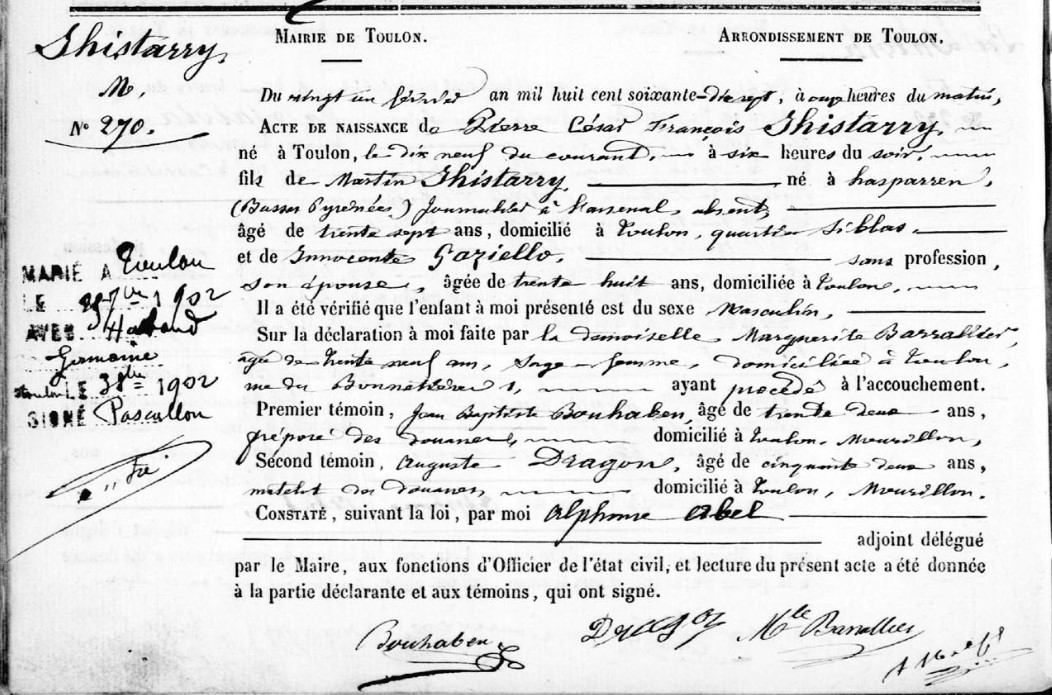 Ghistarry
M.
N° 270.
MARIÉ A Toulon
LE 1902
AVEC Hattaud
Germaine
Toulon LE 3 8bre 1902
SIGNÉ Pascallon
MAIRIE DE TOULON.
ARRONDISSEMENT DE TOULON.
Du vingt un février an mil huit cent soixante-dix sept, à onze heures du matin,
ACTE DE NAISSANCE de Pierre César François Ghistarry,
né à Toulon, le dix neuf du courant, à six heures du soir,
fils de Martin Ghistarry né à hasparren,
(Basses Pyrénées) Journalier à l'arsenal, absent,
âgé de trente sept ans, domicilié à Toulon, quartier Siblas.
et de Innocente Gaziello. sans profession,
son épouse, âgée de trente huit ans, domiciliée à Toulon,
Il a été vérifié que l'enfant à moi présenté est du sexe Masculin,
Sur la déclaration à moi faite par la demoiselle Marguerite Barrallier,
âgée de trente neuf ans, Sage-femme, domiciliée à Toulon
rue du ayant procédé à l'accouchement.
Premier témoin, Jean Baptiste Bouhaben, âgé de trente deux ans,
préposé des douanes, domicilié à Toulon, Mourillon,
Second témoin, Auguste Dragon, âgé de cinquante deux ans,
matelot des douanes, domicilié à Toulon, Mourillon.
CONSTATÉ, suivant la loi, par moi Alphonse Abel
adjoint délégué
par le Maire, aux fonctions d'Officier de l'état civil, et lecture du présent acte a été donnée
à la partie déclarante et aux témoins, qui ont signé.
Bouhaben Dragon Mlle Barrallier